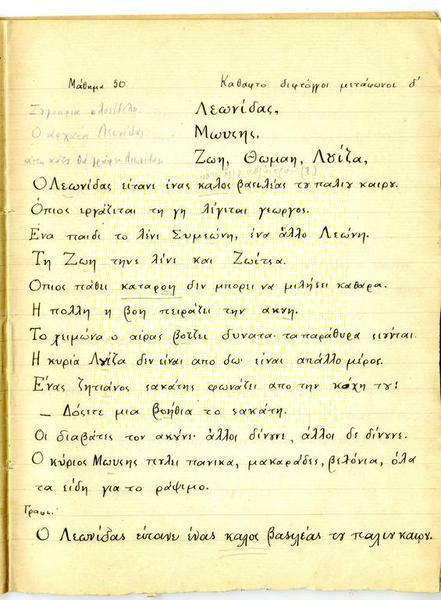 Μάθημα 50 Καθαρτο διφτόγγοι μετάφωνοι δ'
Λεωνίδας,
Ο αρχαία Λεωνίδας Μωυσης,
Ζωη, Θωμαη, Λȣίζα,
Ο Λεωνίδας είτανι ένας καλος βασιλιάς τȣ παλιȣ καιρȣ.
Όπιος εργάζιται τη γη λίγιται γεωργος.
Ενα παιδι το λίνι Συμεώνη, ένα άλλο Λεώνη.
Τη Ζωη τηνε λίνε και Ζωίτσα.
Οπιος πάθει καταρροη δεν μπορει να μιλήσει καθαρα.
Η πολλη η βοη πειράζει την ακοη.
Το χειμώνα ο αίρας βοΐζει δυνατα· τα παράθυρα σειȣνται.
Η κυρία Λȣίζα δεν είναι απο δω· είναι απάλλο μέρος.
Ένας ζητιάνος σακάτης φωνάζει απο την κόχη τȣ:
— Δόσετε μια βοήθια το σακάτη.
Οι διαβάτες τον ακȣνε· άλλοι δίνȣνε, άλλοι δε δίνȣνε.
Ο κύριος Μωυσης πȣλει πανικα, μακαράδες, βελόνια, όλα
τα είδη για το ράψιμο.
Γραφ.
Ο Λεωνίδας είτανε ένας καλος βασιλέας τȣ παλιȣ καιρȣ.